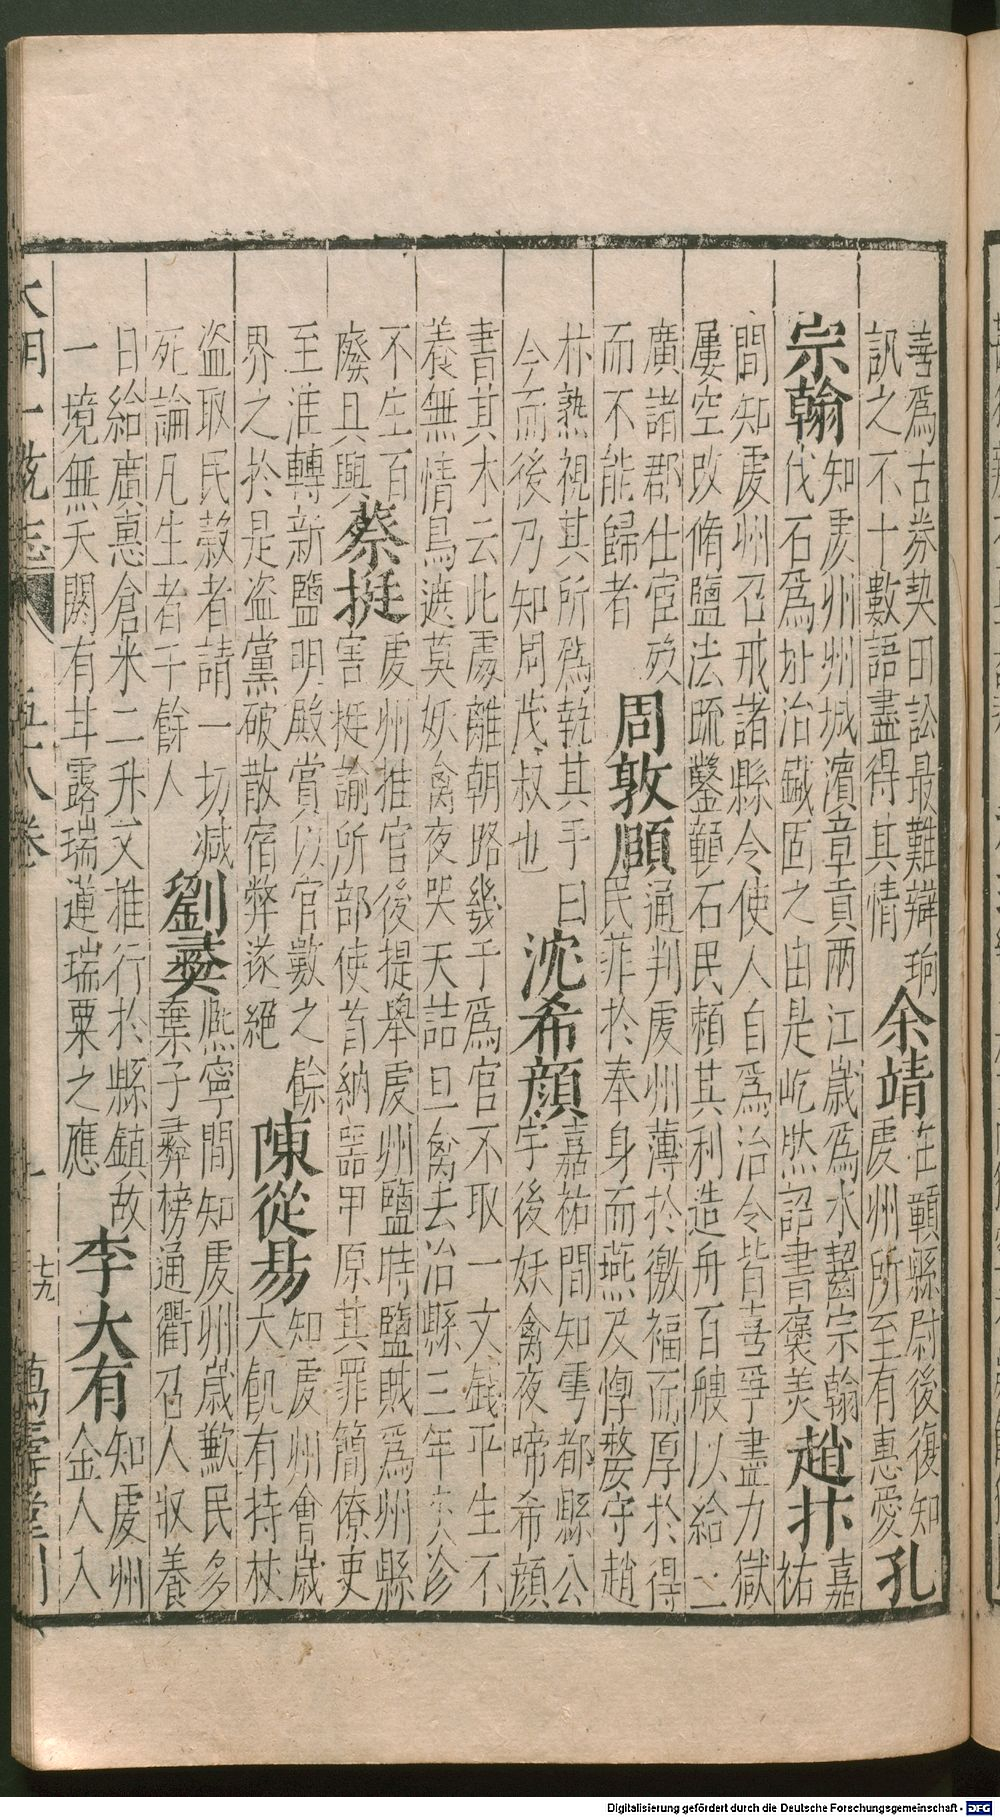 善爲古券契田訟最難辯珦
訊之不十數語盡得其情
余靖
在贛縣尉後復知
虔州所至有惠愛
孔
宗翰
知虔州州城濵章貢兩江歲爲水齧宗翰
伐石爲址冶鐵固之由是屹然詔書褒美
趙抃
嘉
祐
間知虔州召戒諸縣令使人自爲治令皆喜爭盡力獄
屢空改脩鹽法疏鑿贛石民賴其利造舟百艘以給二
廣諸郡仕宦歿
而不能歸者
周敦頤
通判虔州薄於徼福而厚於得
民菲於奉身而燕及惸嫠守趙
抃熟視其所爲執其手曰
今而後乃知周茂叔也
沈希顔
嘉祐間知雩都縣公
宇後妖禽夜啼希顔
書其木云此處離朝路幾千爲官不取一文錢平生不
養無情鳥遮莫妖禽夜哭天詰旦禽去治縣三年災沴
不生百
廢具興
蔡挺
虔州推官後提舉虔州鹽時鹽賊爲州縣
害挺諭所部使首納噐甲原其罪簡僚吏
至淮轉新鹽明殿賞以官數之餘
界之於是盗黨破散宿弊遂絕
陳從易
知虔州會歲
大飢有持杖
盗取民穀者請一切减
死論凡生者千餘人
劉彛
熈寧間知虔州歲歉民多
棄子彛榜通衢召人收養
日給廣惠倉米二升文推行於縣鎮故
一境無夭閼有甘露瑞蓮瑞粟之應
李大有
知虔州
金人入
大明一統志
五十八卷
七九
萬壽堂刊
Digitalisierung gefördert durch die Deutsche Forschungsgemeinschaft - DFG